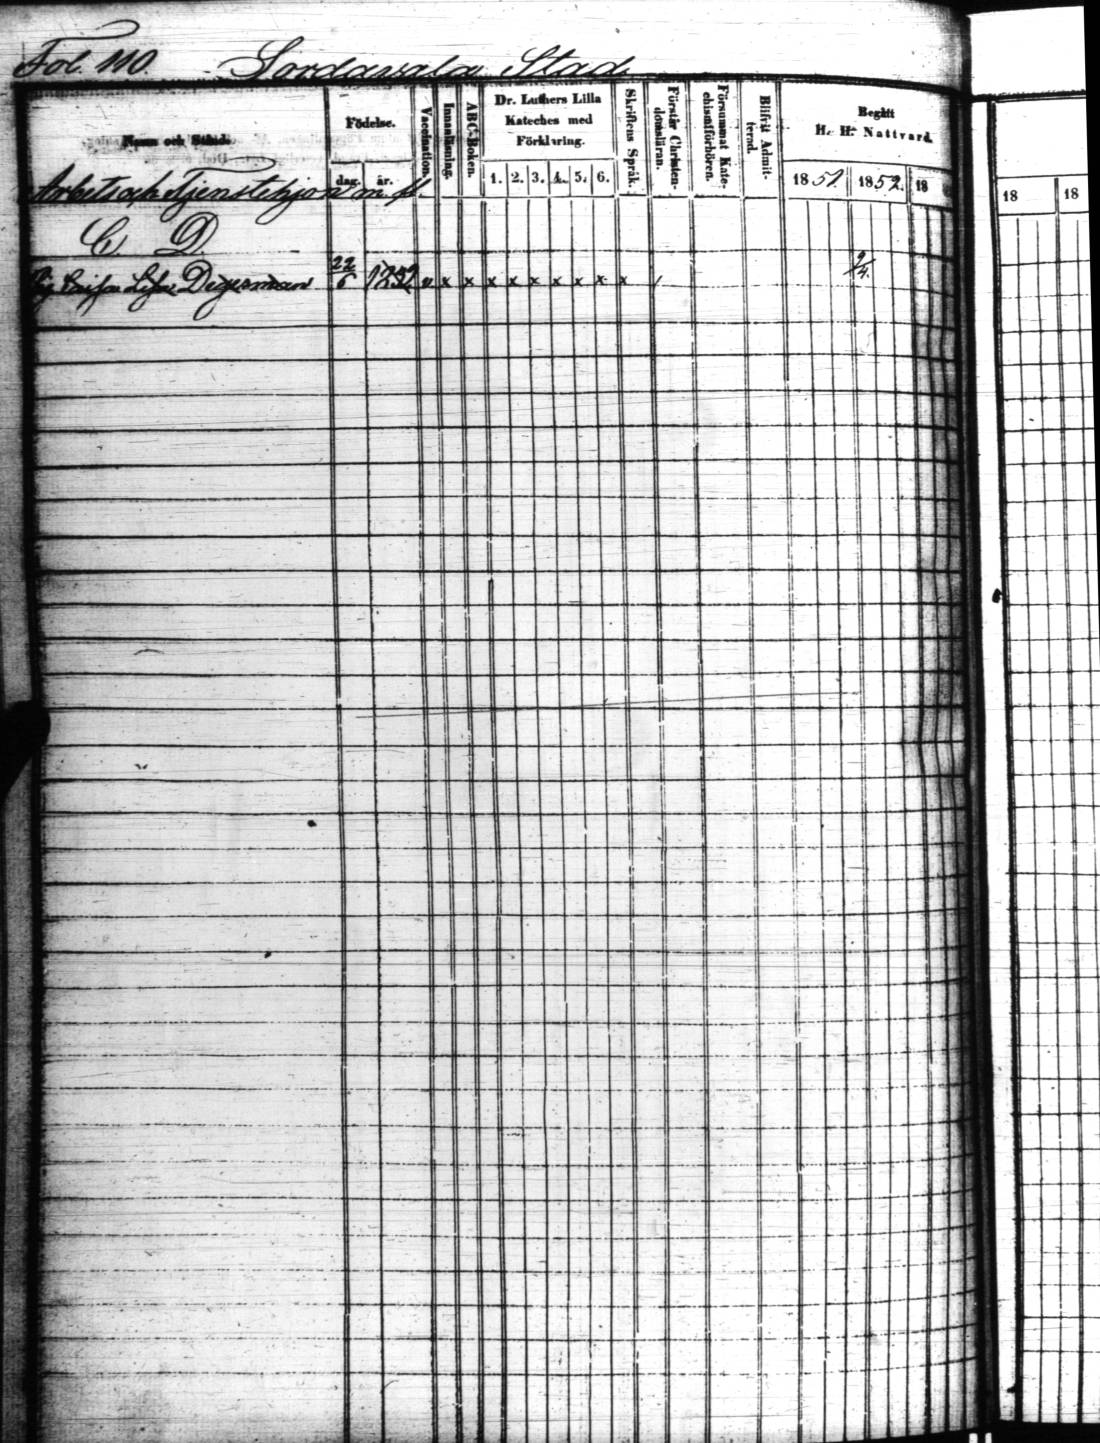 Fol. 110. Sordavala Stad
Namn och Stånd.
Födelse.
dag. år.
Vaccination.
Innanläsning.
ABC-Boken.
Dr. Luthers Lilla
Kateches med
Förklaring.
1. 2. 3. 4. 5. 6.
Skriftens Språk.
Förstår Christen-
domsläran.
Försummat Kate-
chismiförhören.
Blifvit Admit-
terad.
Begått
H. H. Nattvard.
1851. 1852. 18
18 18
Arbets och Tjenstehjon m. fl.
C. D.
Degerman 22/6 v x x x x x x x x x / 9/4.